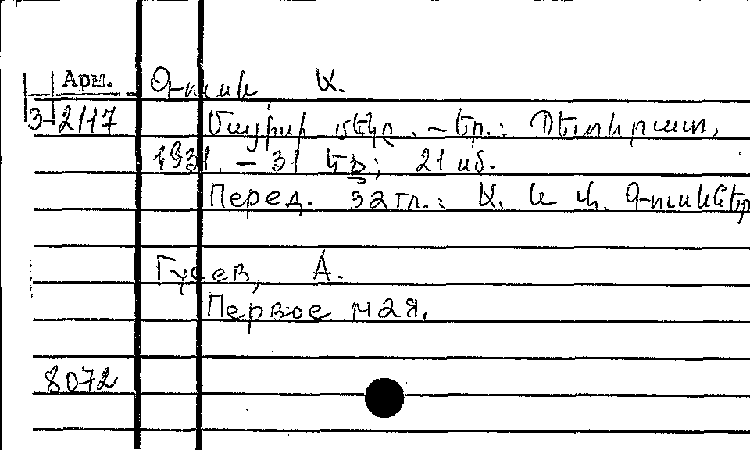 Арм.
3-2117
Գուսև Ա.
Մայիսի մեկը. – Եր.: Պետհրատ,
1931. – 31 եջ; 21 սմ.
Перед. загл.: Ա. և Վ.
Гусев, А.
Первое мая.
8072